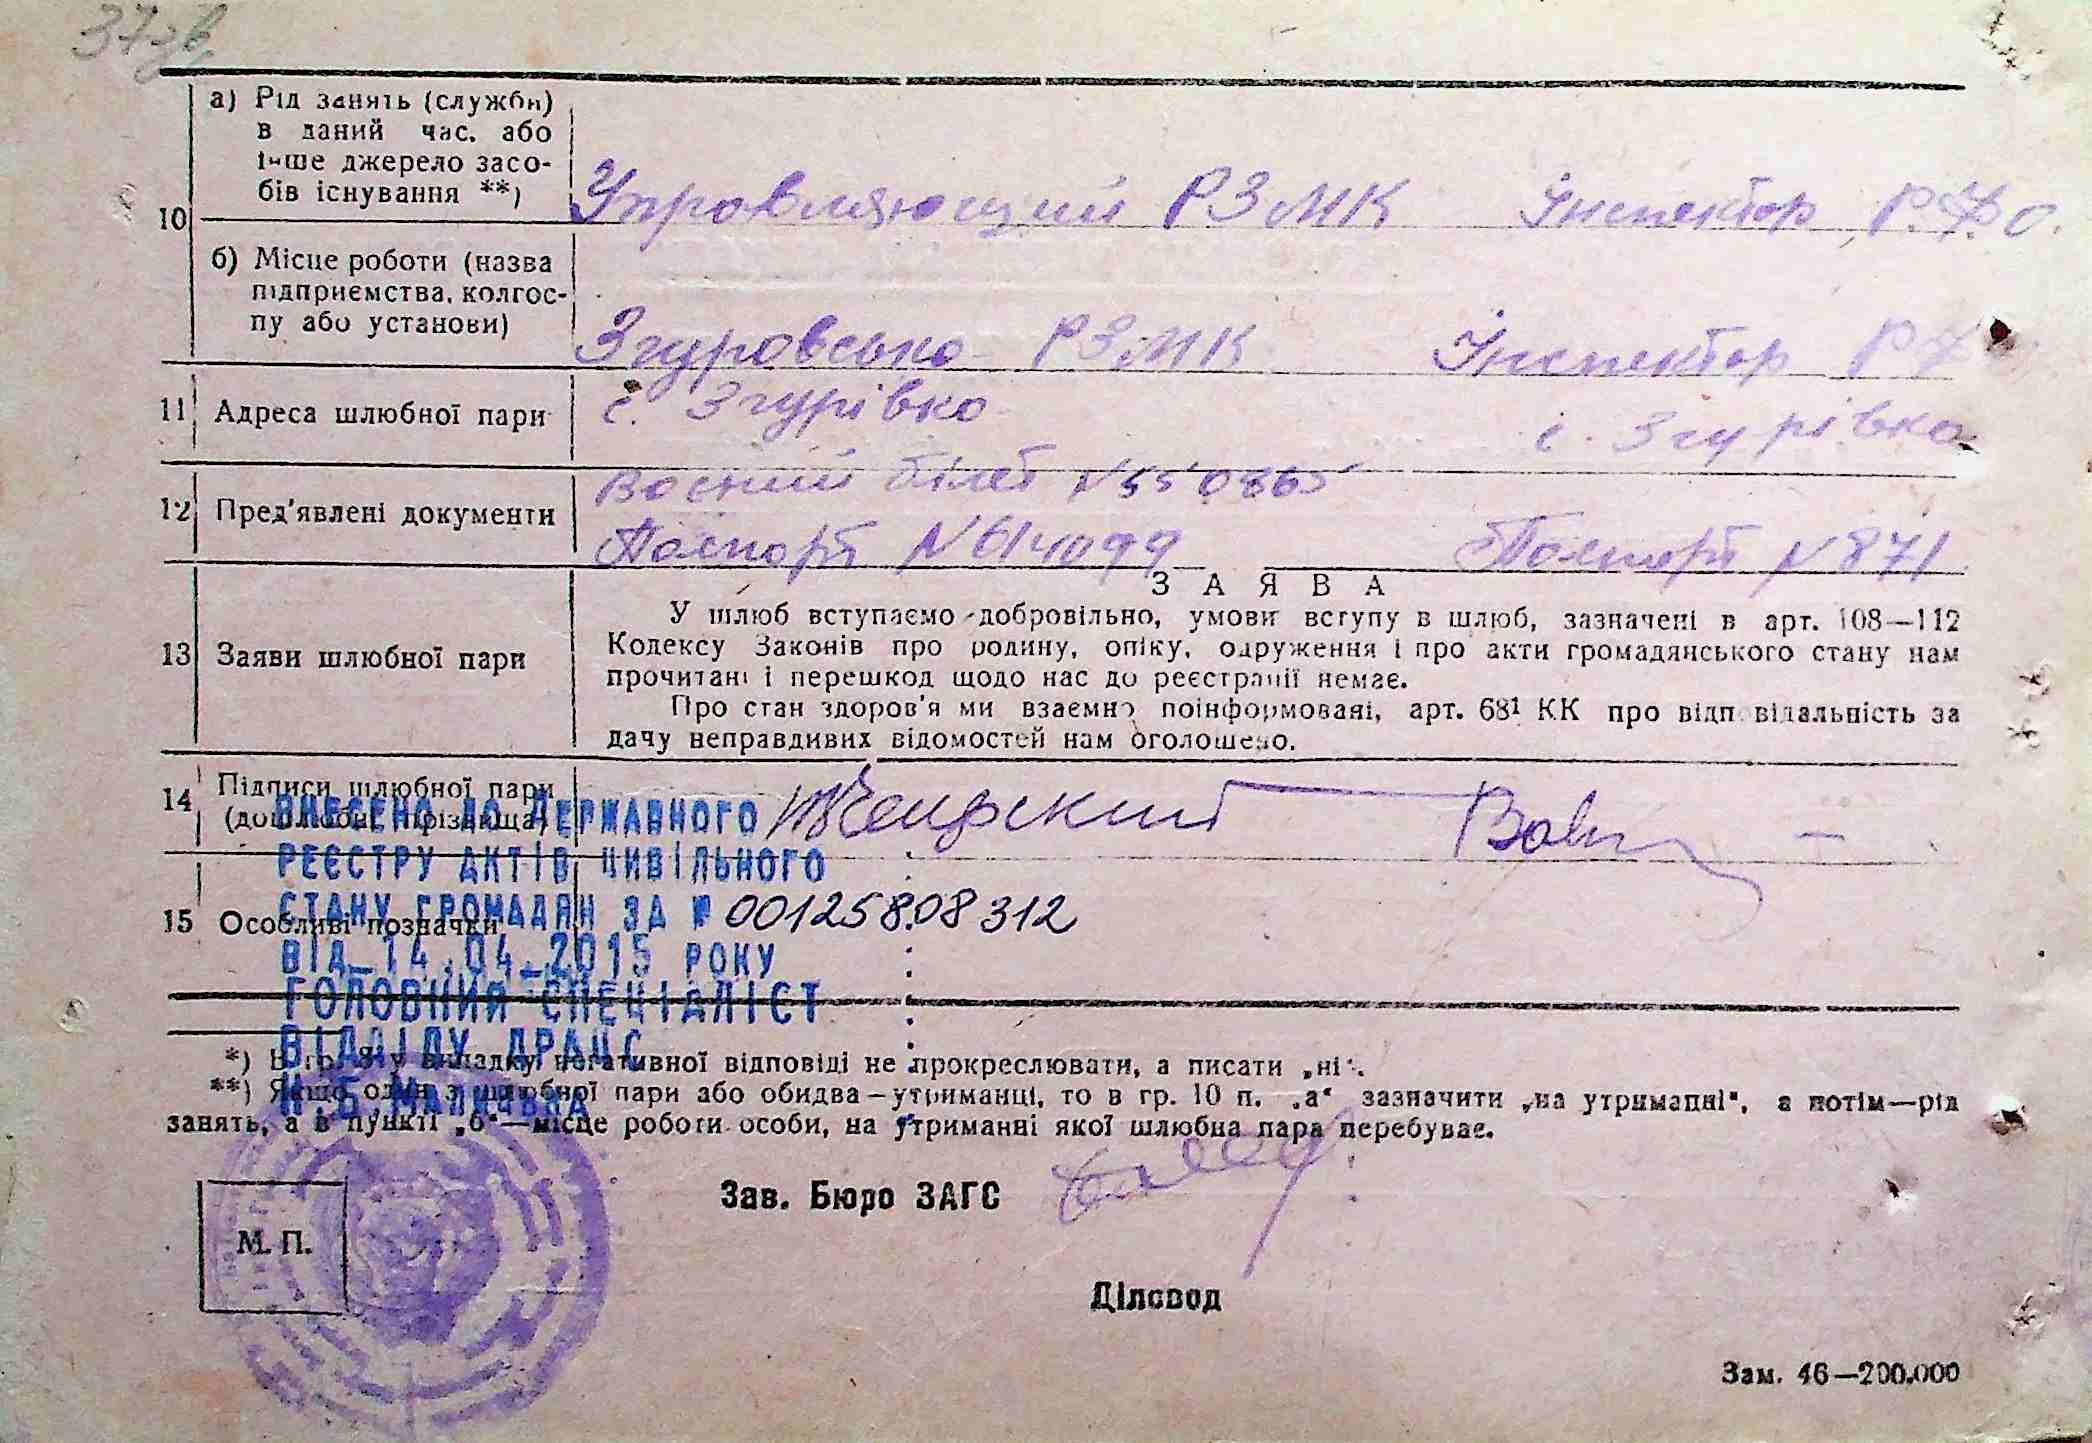 37зв.
10
а) Рід занять (служби)
в даний час, або
інше джерело засо-
бів існування **)
Управляющий РЗМК Інспектор Р.Ф.О.
б) Місце роботи (назва
підприємства, колгос-
пу або установи)
Згуровсько РЗМК Інспектор РФ
11 Адреса шлюбної пари
с. Згурівка с. Згурівка
12 Пред'явлені документи
Воєний білет №550865
Паспорт №614099 Паспорт №871
13 Заяви шлюбної пари
ЗАЯВА
У шлюб вступаємо добровільно, умови вступу в шлюб, зазначені в арт. 108—112
Кодексу Законів про родину, опіку, одруження і про акти громадянського стану нам
прочитані і перешкод щодо нас до реєстрації немає.
Про стан здоров'я ми взаємно поінформовані, арт. 68¹ КК про відповідальність за
дачу неправдивих відомостей нам оголошено.
14 Підписи шлюбної пари
(дошлюбні прізвища)
15 Особливі позначки
ВНЕСЕНО ДО ДЕРЖАВНОГО
РЕЄСТРУ АКТІВ ЦИВІЛЬНОГО
СТАНУ ГРОМАДЯН ЗА № 00125808312
ВІД 14.04.2015 РОКУ
ГОЛОВНИЙ СПЕЦІАЛІСТ
ВІДДІЛУ ДРАЦС
*) В гр. 8 у випадку негативної відповіді не прокреслювати, а писати „ні".
**) Якщо один з шлюбної пари або обидва—утриманці, то в гр. 10 п. „а" зазначити „на утриманні", а потім—рід
занять, а в пункті „б"—місце роботи особи, на утриманні якої шлюбна пара перебуває.
Зав. Бюро ЗАГС
М. П.
Діловод
Зам. 46—200.000